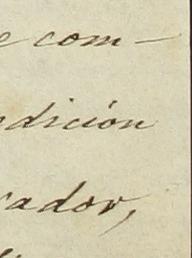 e com-
dición
cador,